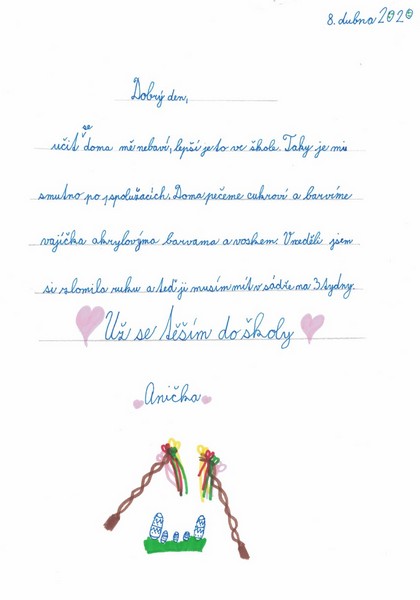 8. dubna 2020
Dobrý den,
učit se doma mě nebaví, lepší je to ve škole. Taky je mi
smutno po spolužacích. Doma pečeme cukroví a barvíme
vajíčka akrylovýma barvama a voskem. V neděli jsem
si zlomila ruku a teď ji musím mít v sádře na 3 týdny.
Už se těším do školy
Anička